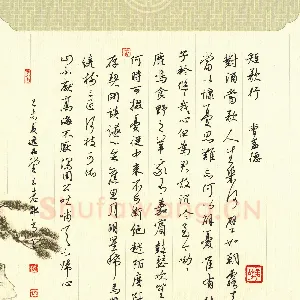 短歌行 曹孟德
對酒當歌人生幾何譬如朝露
當以慷憂思難忘何以解憂唯有
子衿悠悠我心但為君故沉吟至今呦
鹿鳴食野之苹我有嘉賓鼓瑟吹笙
何時可掇憂從中來不可斷絕越陌度
存契闊談讌心念舊恩月明星稀烏
繞樹三匝何枝可依
山不厭高海不厭深周公吐哺天下歸心